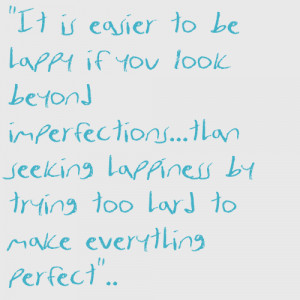 "It is easier to be
happy if you look
beyond
imperfections...than
seeking happiness by
trying too hard to
make everything
perfect"..